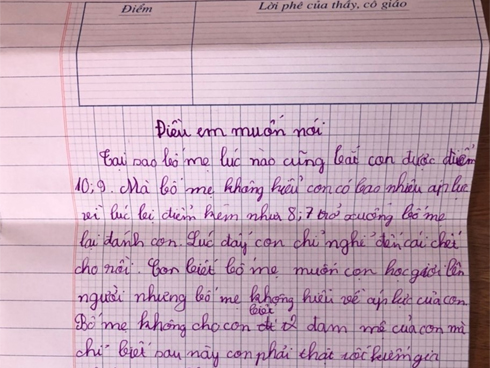 Điểm
Lời phê của thầy, cô giáo
Điều em muốn nói
Tại sao bố mẹ lúc nào cũng bắt con được điểm
10; 9. Mà bố mẹ không hiểu con có bao nhiêu áp lực
vì lúc bị điểm kém như 8; 7 trở xuống bố mẹ
lại đánh con. Lúc đấy con chỉ nghĩ đến cái chết
cho rồi. Con biết bố mẹ muốn con học giỏi lên
người nhưng bố mẹ không hiểu về áp lực của con
Bố mẹ không cho con biết đam mê của con mà
chỉ biết sau này con phải thật